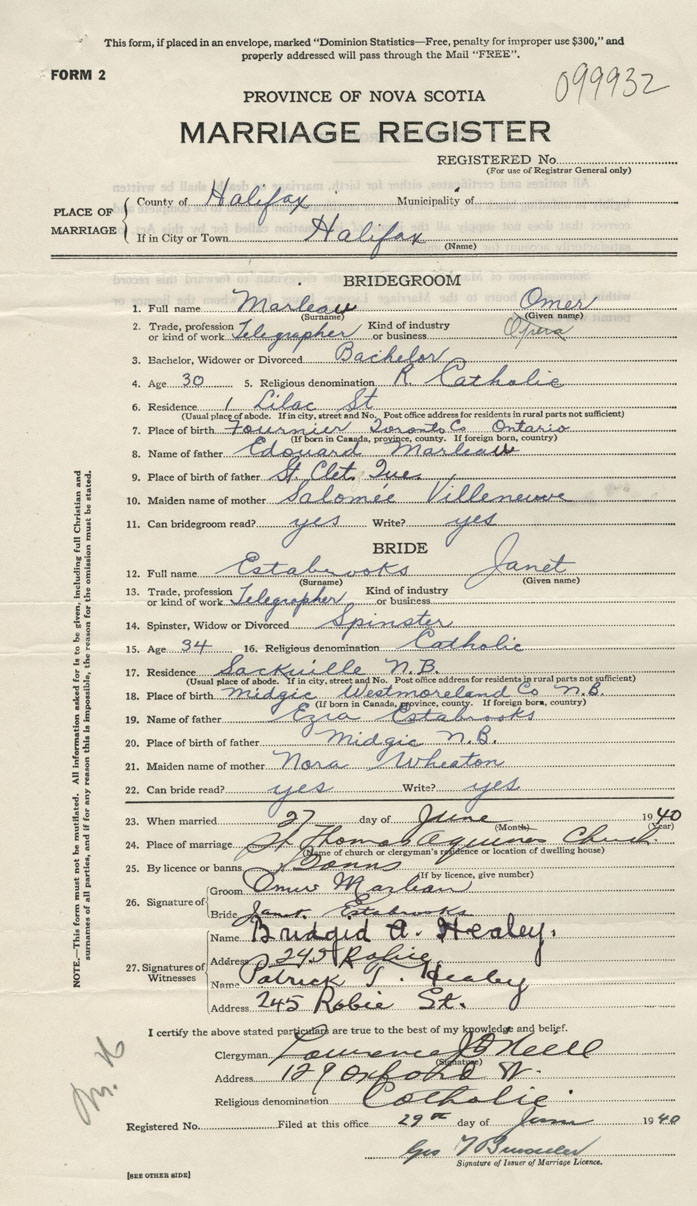 This form, if placed in an envelope, marked "Dominion Statistics—Free, penalty for improper use $300," and
properly addressed will pass through the Mail "FREE".
FORM 2
099932
PROVINCE OF NOVA SCOTIA
MARRIAGE REGISTER
REGISTERED No.
(For use of Registrar General only)
PLACE OF MARRIAGE
County of Halifax Municipality of
If in City or Town Halifax
(Name)
BRIDEGROOM
1. Full name Marleau Omer
(Surname) (Given name)
2. Trade, profession or kind of work Telegrapher Kind of industry or business Opera
3. Bachelor, Widower or Divorced Bachelor
4. Age 30 5. Religious denomination R. Catholic
6. Residence 1 Lilac St
(Usual place of abode. If in city, street and No. Post office address for residents in rural parts not sufficient)
7. Place of birth Fournier Toronto Co Ontario
(If born in Canada, province, county. If foreign born, country)
8. Name of father Edouard Marleau
9. Place of birth of father St. Clet. Que.
10. Maiden name of mother Salomée Villeneuve
11. Can bridegroom read? yes Write? yes
BRIDE
12. Full name Estabrooks Janet
(Surname) (Given name)
13. Trade, profession or kind of work Telegrapher Kind of industry or business
14. Spinster, Widow or Divorced Spinster
15. Age 34 16. Religious denomination Catholic
17. Residence Sackville N.B.
(Usual place of abode. If in city, street and No. Post office address for residents in rural parts not sufficient)
18. Place of birth Midgic Westmoreland Co N.B.
(If born in Canada, province, county. If foreign born, country)
19. Name of father Ezra Estabrooks
20. Place of birth of father Midgic N.B.
21. Maiden name of mother Nora Wheaton
22. Can bride read? yes Write? yes
23. When married 27 day of June 1940
(Month) (Year)
24. Place of marriage St Thomas Aquinas Church
(Name of church or clergyman's residence or location of dwelling house)
25. By licence or banns Banns
(If by licence, give number)
26. Signature of
Groom Omer Marleau
Bride Janet Estabrooks
27. Signatures of Witnesses
Name Bridgid A. Healey.
Address 245 Robie
Name Patrick J. Healey
Address 245 Robie St.
I certify the above stated particulars are true to the best of my knowledge and belief.
Clergyman Lawrence J O'Neill
(Signature)
Address 129 Oxford St.
Religious denomination Catholic
Registered No. Filed at this office 29th day of June 1940
Geo
Signature of Issuer of Marriage Licence.
[SEE OTHER SIDE]
NOTE.—This form must not be mutilated. All information asked for is to be given, including full Christian and
surnames of all parties, and if for any reason this is impossible, the reason for the omission must be stated.